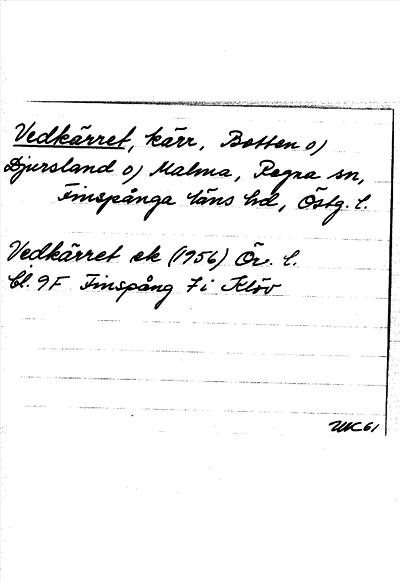 Vedkärret, kärr, Botten o)
Djursland o) Malma, Regna sn,
Finspånga läns hd, Östg. l.
Vedkärret ek (1956) Ör. l.
bl. 9F Finspång 7 i Klöv
UK 61